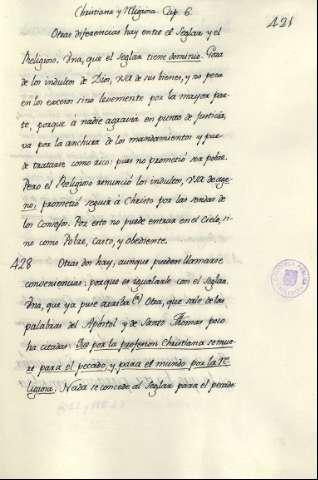 Christiana y Religiosa. Cap. 6.
421
Otras diferencias hay entre el Seglar y el
Religioso. Una, que el Seglar tiene dominio. Goza
de los indultos de Dios, usa de sus bienes, y no peca
en los excesos sino levemente por la mayor par-
te, porque á nadie agravia en punto de justicia,
va por la anchura de los mandamientos y pue-
de tratarse como rico: pues no prometió ser pobre.
Pero el Religioso renunció los indultos, usa de age-
no, prometió seguir á Christo por las sendas de
los Consejos. Por esto no puede entrar en el Cielo, si-
no como Pobre, casto, y obediente.
428 Otras dos hay, aunque pueden llamarse
conveniencias: porque es igualarle con el Seglar.
Una, que ya puse arriba Otra, que sale de las
palabras del Apóstol y de Santo Thomas poco
ha citadas. Que por la profesion Christiana se mue-
re para el pecado, y para el mundo por la Re-
ligiosa. Nada se concede al Seglar para el pecado